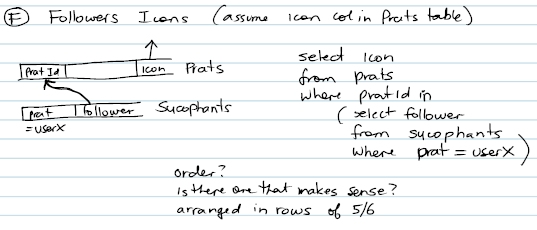 Ⓔ Followers Icons (assume icon col in Prats table)
Prat Id | | Icon Prats
prat | follower Sycophants
= userX
select Icon
from prats
where pratId in
( select follower
from sycophants
where prat = userX )
order?
Is there one that makes sense?
arranged in rows of 5/6